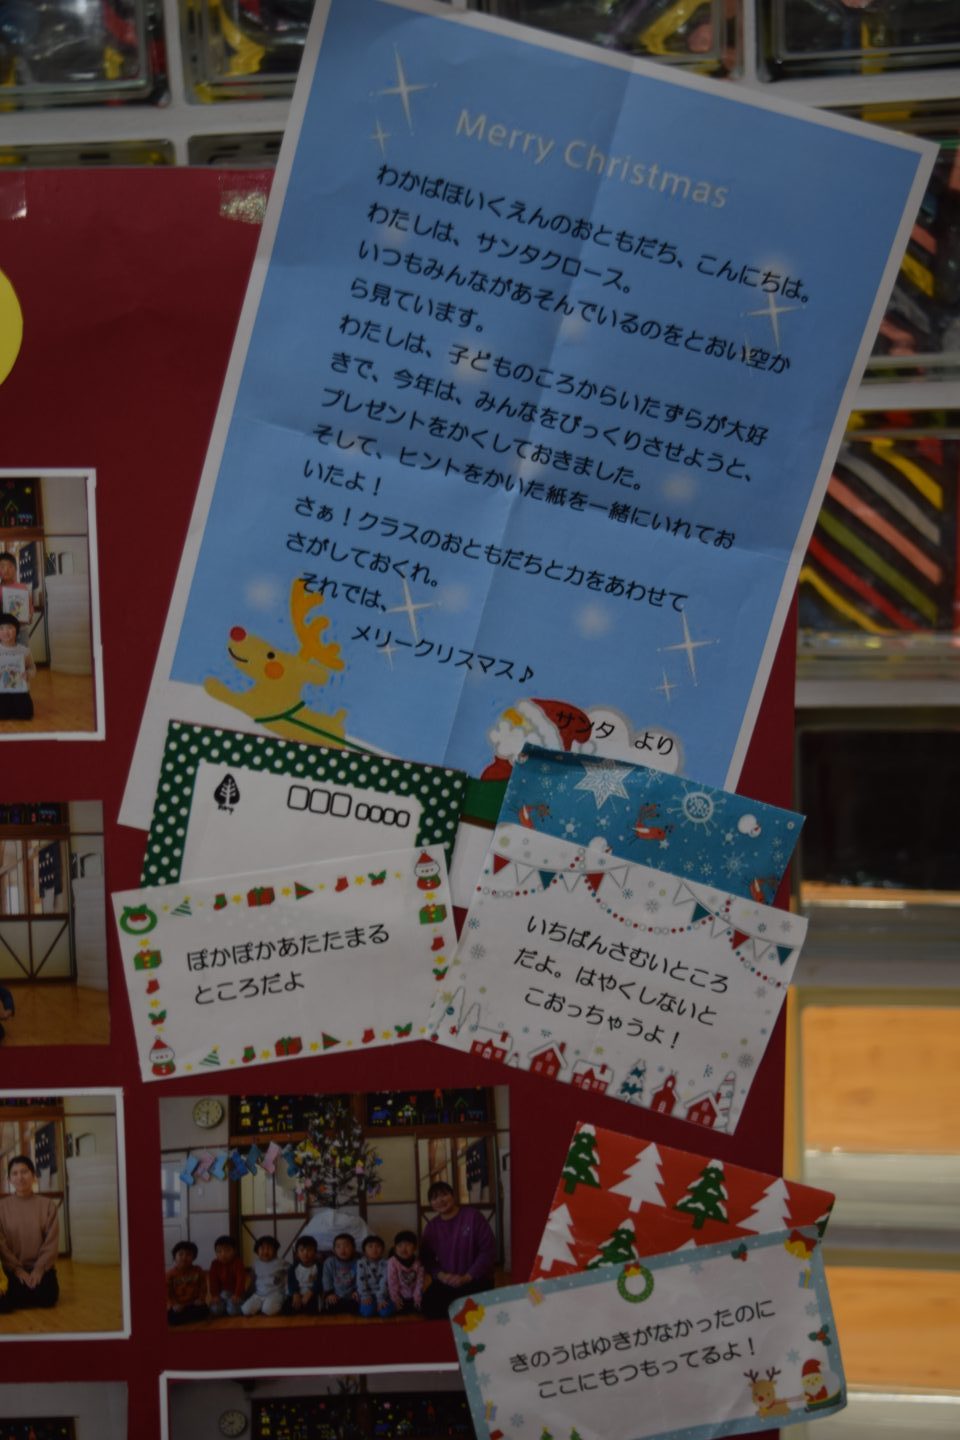 Merry Christmas
わかばほいくえんのおともだち、こんにちは。
わたしは、サンタクロース。
いつもみんながあそんでいるのをとおい空か
ら見ています。
わたしは、子どものころからいたずらが大好
きで、今年は、みんなをびっくりさせようと、
プレゼントをかくしておきました。
そして、ヒントをかいた紙を一緒にいれてお
いたよ！
さぁ！クラスのおともだちと力をあわせて
さがしておくれ。
それでは、
メリークリスマス♪
サンタ より
ぽかぽかあたたまる
ところだよ
いちばんさむいところ
だよ。はやくしないと
こおっちゃうよ！
きのうはゆきがなかったのに
ここにもつもってるよ！